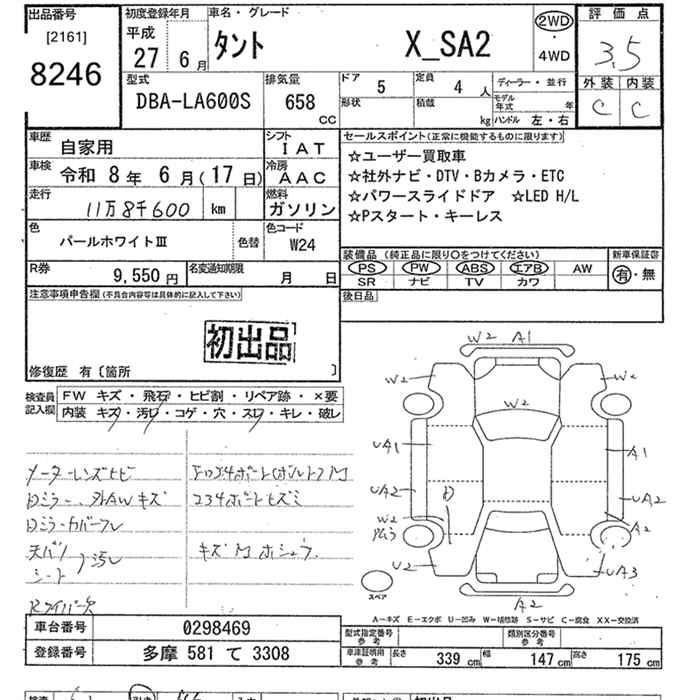 出品番号
[2161]
8246
初度登録年月
平成
27 6月
車名・グレード
タント X_SA2
2WD
・
4WD
評価点
3.5
外装 内装
C C
型式
DBA-LA600S
排気量
658 cc
ドア 5
形状
定員 4 人
積載 kg
ディーラー・並行
モデル年式 年
ハンドル 左・右
車歴 自家用
シフト IAT
車検 令和 8年 6月(17日)
冷房 AAC
走行 11万8千600 km
燃料 ガソリン
色 パールホワイトIII
色替
色コード W24
セールスポイント(正常に機能するものに限ります)
☆ユーザー買取車
☆社外ナビ・DTV・Bカメラ・ETC
☆パワースライドドア ☆LED H/L
☆Pスタート・キーレス
R券 9,550 円
名変通知期限 月 日
装備品 (純正品に限り〇をつけてください)
PS PW ABS エアB AW
SR ナビ TV カワ
新車保証書
有・無
注意事項申告欄(不具合内容等は具体的に記入して下さい)
後日品
初出品
修復歴 有〔箇所 〕
検査員記入欄
FW キズ・飛石・ヒビ割・リペア跡・×要
内装 キズ・汚レ・コゲ・穴・スレ・キレ・破レ
メーターレンズヒビ
Rミラー、外AWキズ
Rミラーカバーワレ
天バリ
シート 汚レ
W2 A1
W2 W2
W2
UA1 A1
UA2 UA2
W2 A2
U2 UA3
A2
スペア
A-キズ E-エクボ U-凹み W-補修跡 S-サビ C-腐食 XX-交換済
車台番号 0298469
登録番号 多摩 581 て 3308
型式指定番号 参考
類別区分番号 参考
車庫証明用 参考
長さ 339 cm 幅 147 cm 高さ 175 cm
初出品